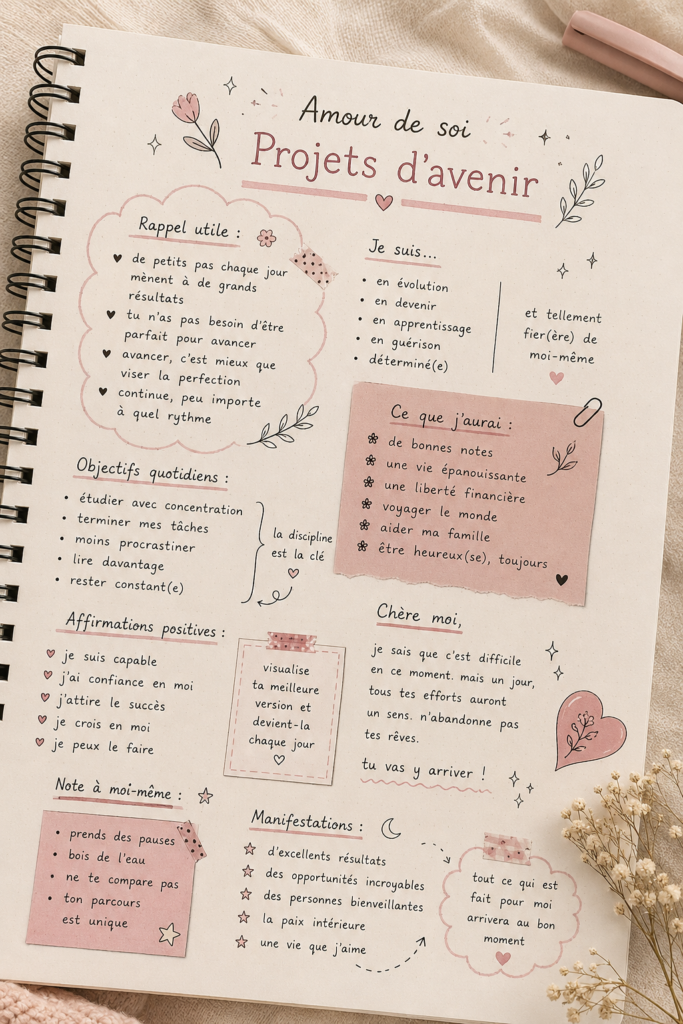 Amour de soi
Projets d'avenir
Rappel utile :
♥ de petits pas chaque jour
mènent à de grands
résultats
♥ tu n'as pas besoin d'être
parfait pour avancer
♥ avancer, c'est mieux que
viser la perfection
♥ continue, peu importe
à quel rythme
Je suis...
• en évolution
• en devenir
• en apprentissage
• en guérison
• déterminé(e)
et tellement
fier(ère) de
moi-même
Ce que j'aurai :
de bonnes notes
une vie épanouissante
une liberté financière
voyager le monde
aider ma famille
être heureux(se), toujours
Objectifs quotidiens :
• étudier avec concentration
• terminer mes tâches
• moins procrastiner
• lire davantage
• rester constant(e)
la discipline
est la clé
Affirmations positives :
je suis capable
j'ai confiance en moi
j'attire le succès
je crois en moi
je peux le faire
visualise
ta meilleure
version et
devient-la
chaque jour
Chère moi,
je sais que c'est difficile
en ce moment. mais un jour,
tous tes efforts auront
un sens. n'abandonne pas
tes rêves.
tu vas y arriver !
Note à moi-même :
• prends des pauses
• bois de l'eau
• ne te compare pas
• ton parcours
est unique
Manifestations :
d'excellents résultats
des opportunités incroyables
des personnes bienveillantes
la paix intérieure
une vie que j'aime
tout ce qui est
fait pour moi
arrivera au bon
moment